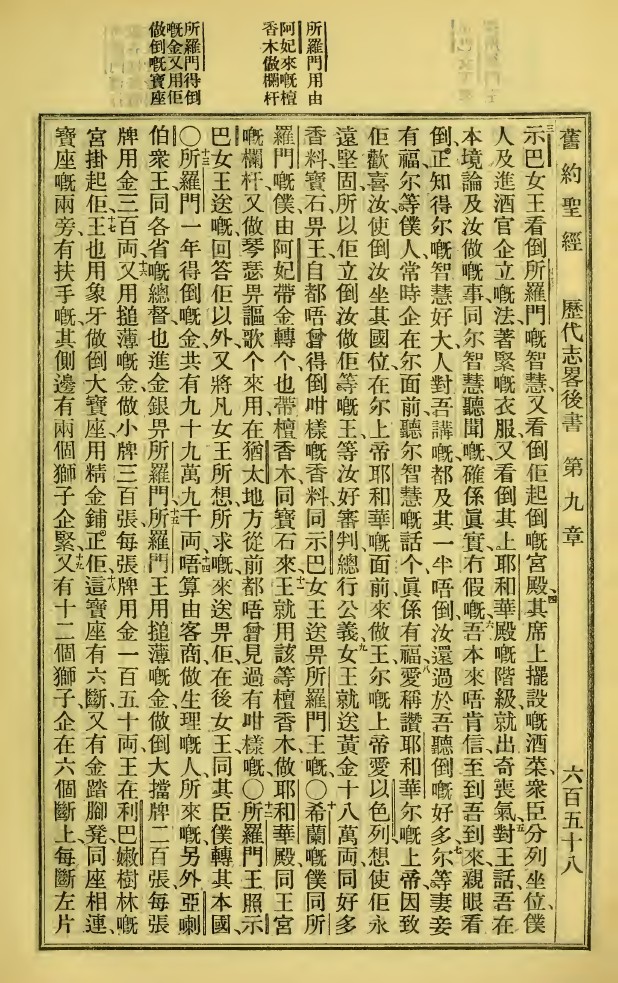 舊約聖經 歷代志畧後書 第九章 六百五十八
三示巴女王看倒所羅門嘅智慧、又看倒佢起倒嘅宮殿、四其席上擺設嘅酒菜、衆臣分列坐位、僕
人及進酒官企立嘅法、著緊嘅衣服、又看倒其上耶和華殿嘅階級、就出奇喪氣、五對王話、吾在
本境論及汝做嘅事、同尔智慧、聽聞嘅、確係眞實冇假嘅、六吾本來唔肯信、至到吾到來、親眼看
倒、正知得尔嘅智慧好大、人對吾講嘅、都及其一半唔倒、汝還過於吾聽倒嘅好多、七尔等妻妾
有福、尔等僕人、常時企在尔面前、聽尔智慧嘅話个、眞係有福、八愛稱讚耶和華尔嘅上帝、因致
佢歡喜汝、使倒汝坐其國位、在尔上帝耶和華嘅面前來做王、尔嘅上帝愛以色列、想使佢永
遠堅固、所以佢立倒汝做佢等嘅王、等汝好審判總行公義、九女王就送黃金十八萬両、同好多
香料寶石畀王、自都唔曾得倒咁樣嘅香料、同示巴女王送畀所羅門王嘅、〇十希蘭嘅僕、同所
羅門嘅僕、由阿妃帶金轉个、也帶檀香木同寶石來、十一王就用該等檀香木、做耶和華殿、同王宮
嘅欄杆、又做琴瑟、畀謳歌个來用、在猶太地方、從前都唔曾見過有咁樣嘅、〇十二所羅門王、照示
巴女王送嘅、回答佢以外、又將凡女王所想所求嘅、來送畀佢、在後女王同其臣僕、轉其本國、
〇十三所羅門一年得倒嘅金、共有九十九萬九千両、十四唔算由客商做生理嘅人所來嘅、另外亞喇
伯衆王、同各省嘅總督、也進金銀畀所羅門、十五所羅門王用搥薄嘅金、做倒大擋牌二百張、每張
牌用金三百両、十六又用搥薄嘅金、做小牌三百張、每張牌用金一百五十両、王在利巴嫩樹林嘅
宮、掛起佢、十七王也用象牙、做倒大寶座、用精金鋪正佢、十八這寶座有六斷、又有金踏腳凳、同座相連、
寶座嘅兩旁、有扶手嘅、其側邊有兩個獅子企緊、十九又有十二個獅子、企在六個斷上、每斷左片
所羅門用由
阿妃來嘅檀
香木做欄杆
所羅門得倒
嘅金又用佢
做倒嘅寶座